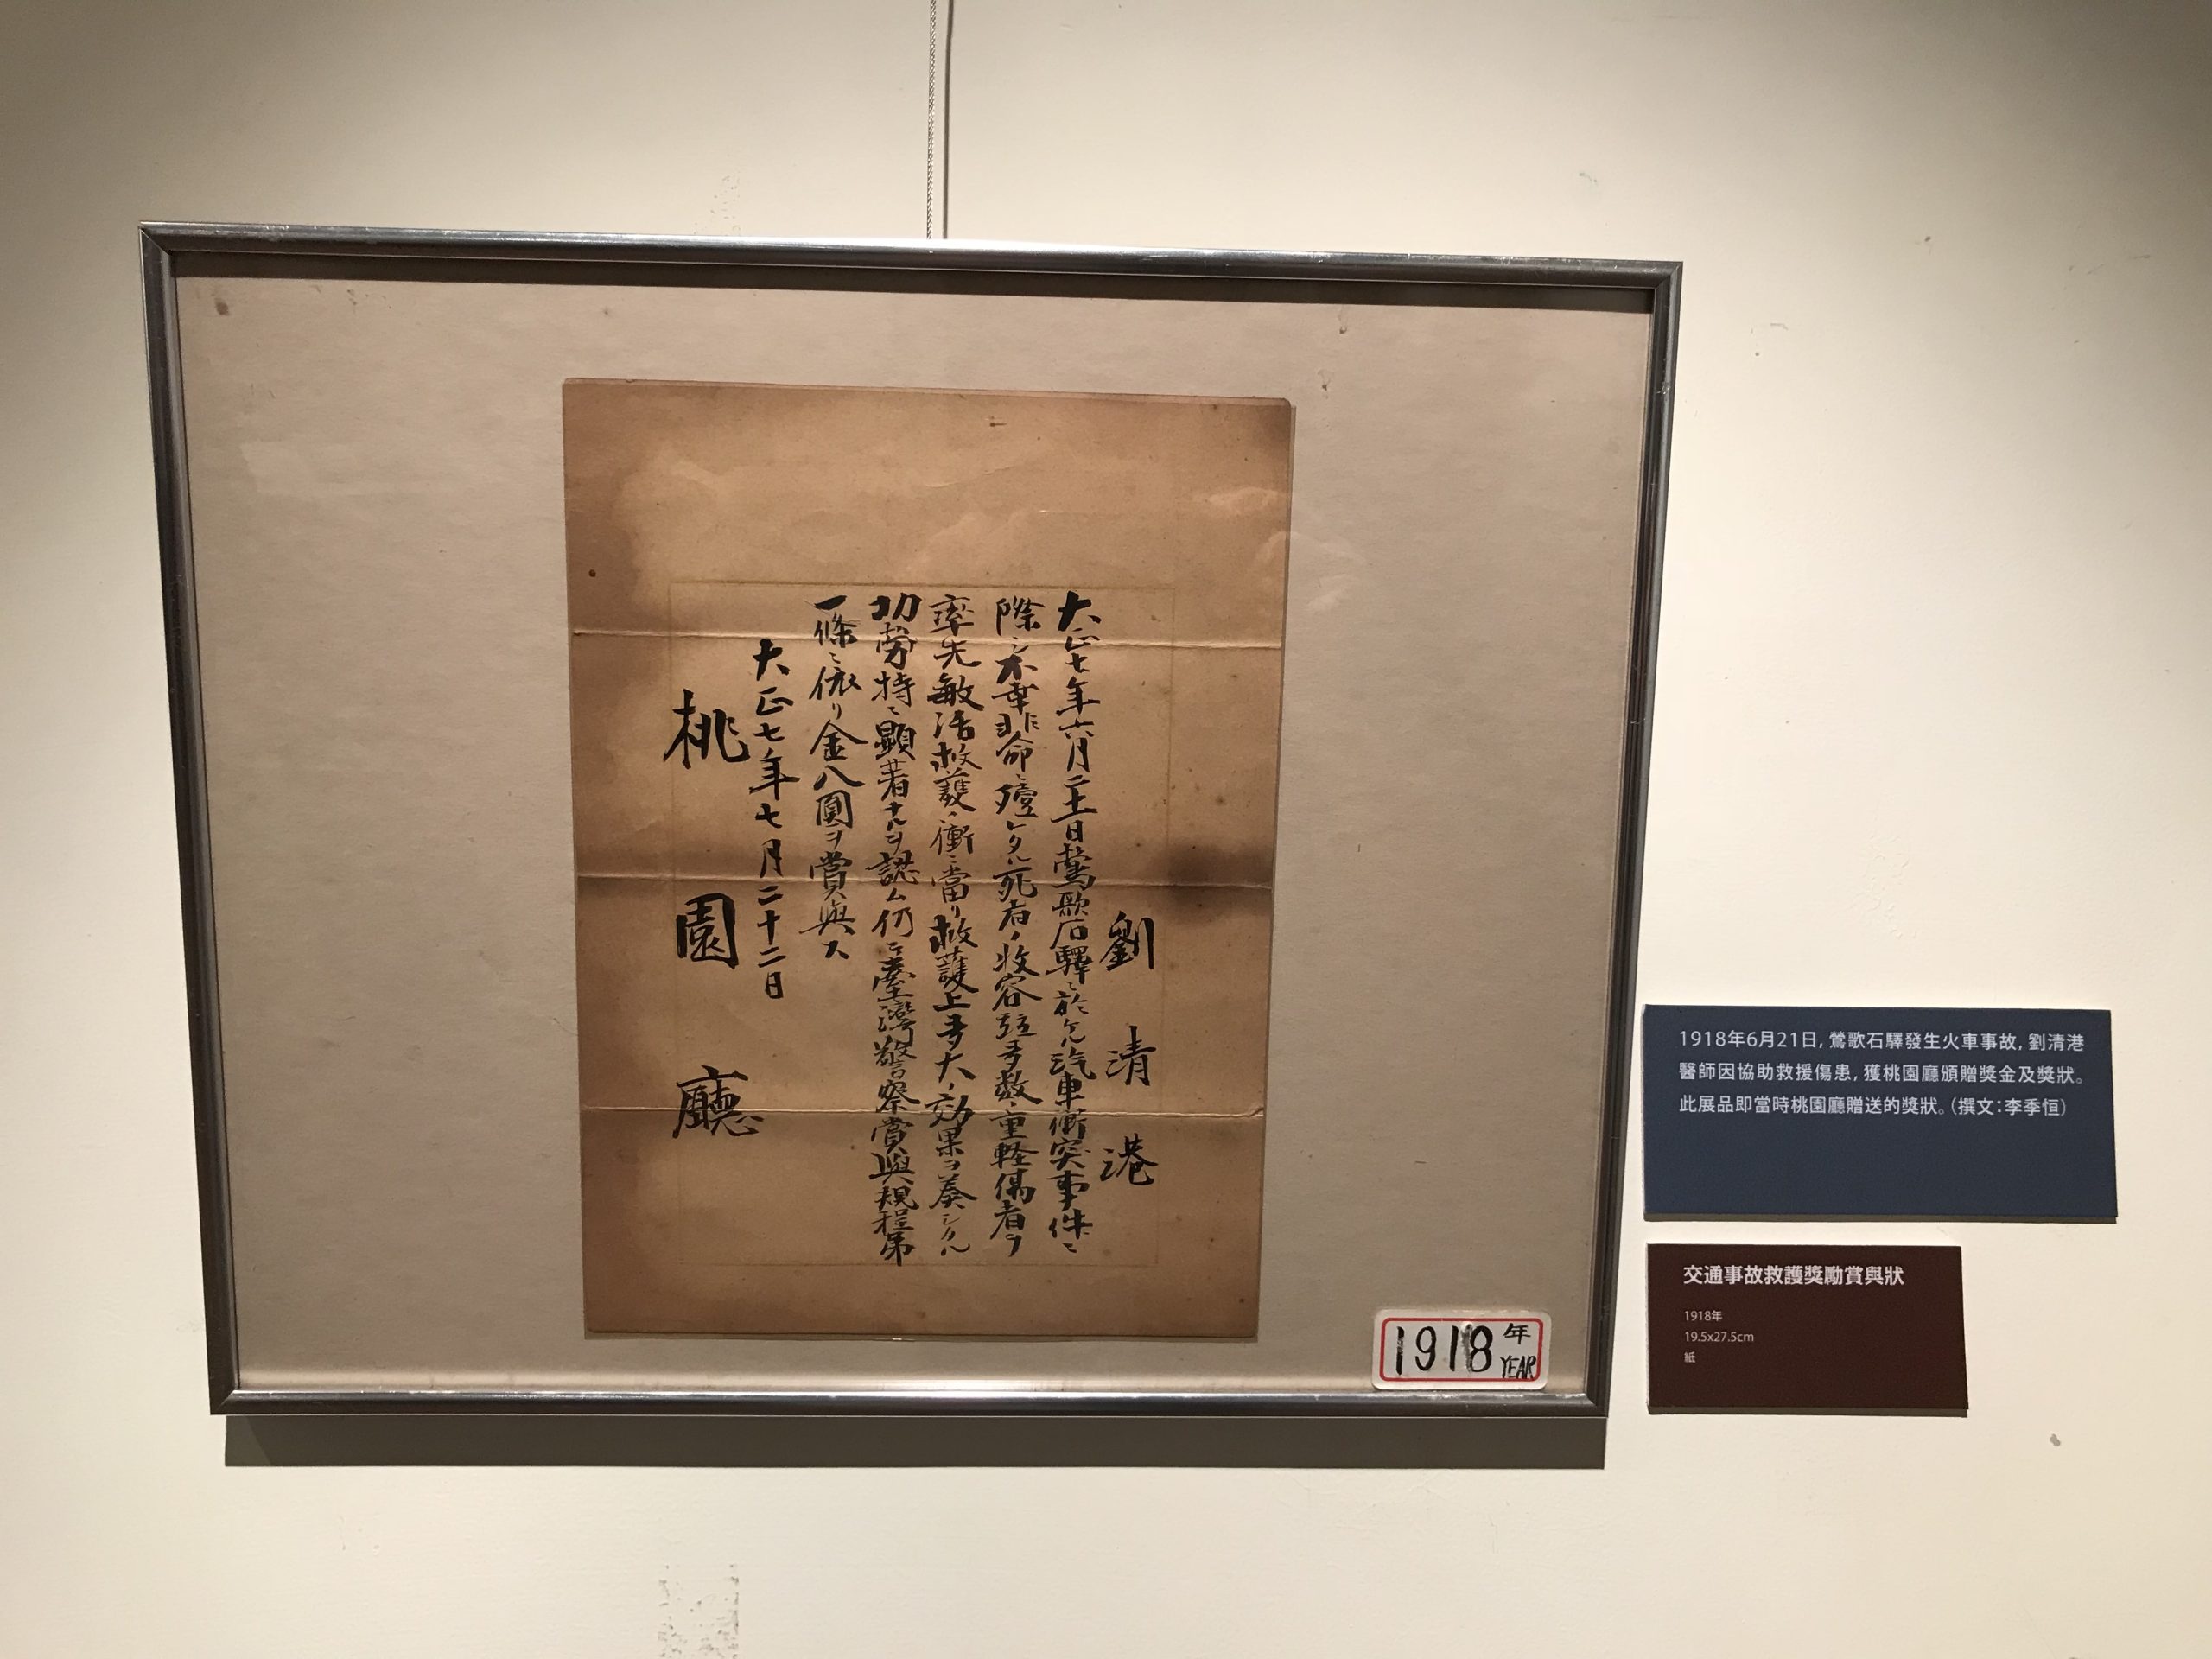 劉清港
大正七年六月二十一日鶯歌石驛ニ於ケル汽車衝突事件ニ
際シ不幸非命ニ殪レタル死者ノ收容竝多数ノ重軽傷者ヲ
率先敏活救護ノ衝ニ當リ救護上多大ノ効果ヲ奏シタル
功勞特ニ顯著ナルヲ認ム仍テ臺灣警察賞與規程第
一條ニ依リ金八圓ヲ賞與ス
大正七年七月二十二日
桃園廳
1918年
YEAR
1918年6月21日,鶯歌石驛發生火車事故,劉清港
醫師因協助救援傷患,獲桃園廳頒贈獎金及獎狀。
此展品即當時桃園廳贈送的獎狀。(撰文:李季恒)
交通事故救護獎勵賞與狀
1918年
19.5x27.5cm
紙